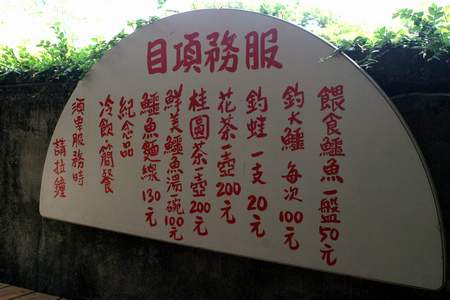 服務項目
餵食鱷魚一盤50元
釣大鱷 每次100元
釣蛙 一支20元
花茶一壺200元
桂圓茶一壺200元
鮮美鱷魚湯一碗100元
鱷魚麵線130元
紀念品
冷飲.簡餐
須要服務時
請拉鐘